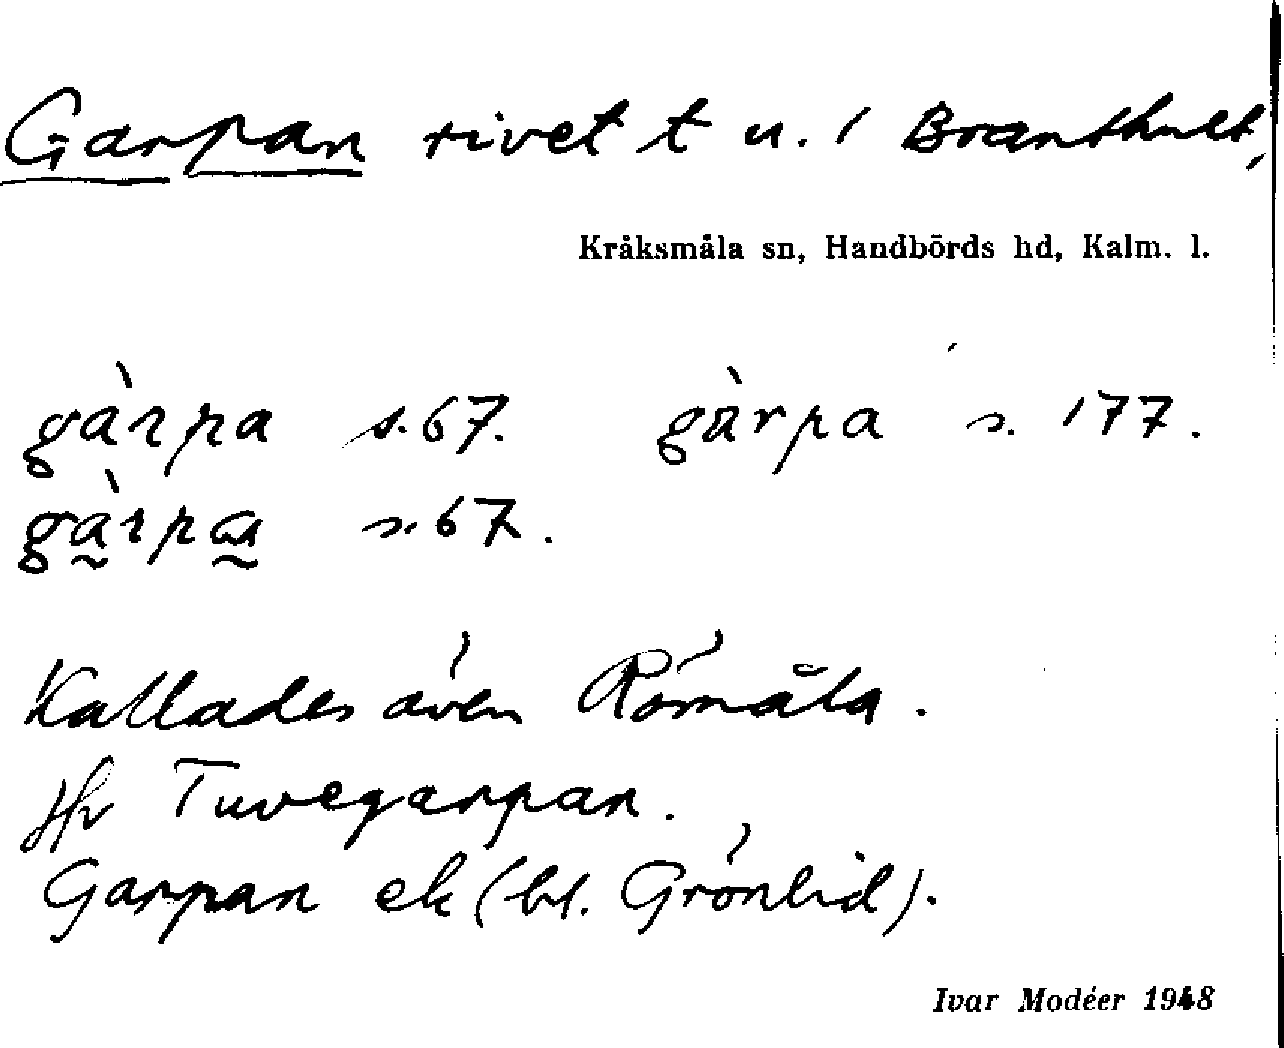 Garpan rivet t u. / Branthult,
Kråksmåla sn, Handbörds hd, Kalm. l.
gàrpa s. 67. gàrpa s. 177.
gàrpa s. 67.
Kallades även Römåla.
Jfr Tuvegarpan.
Garpan ek (bl. Grönlid).
Ivar Modéer 1948